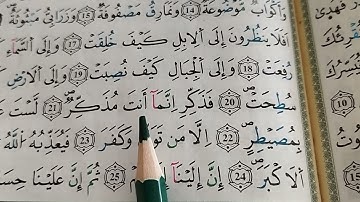 وَأَكْوَابٌ مَوْضُوعَةٌ ﴿14﴾ وَنَمَارِقُ مَصْفُوفَةٌ ﴿15﴾ وَزَرَابِيُّ مَبْثُوثَةٌ
اَفَلَا يَنْظُرُونَ اِلَى الْاِبِلِ كَيْفَ خُلِقَتْ ﴿17﴾ وَاِلَى السَّمَٓاءِ
رُفِعَتْ ﴿18﴾ وَاِلَى الْجِبَالِ كَيْفَ نُصِبَتْ ﴿19﴾ وَاِلَى الْاَرْضِ
سُطِحَتْ ﴿20﴾ فَذَكِّرْ اِنَّمَٓا اَنْتَ مُذَكِّرٌ ﴿21﴾ لَسْتَ
بِمُصَيْطِرٍ ﴿22﴾ اِلَّا مَنْ تَوَلّٰى وَكَفَرَ ﴿23﴾ فَيُعَذِّبُهُ اللّٰهُ
الْاَكْبَرَ ﴿24﴾ اِنَّ اِلَيْنَٓا ﴿25﴾ ثُمَّ اِنَّ عَلَيْنَا